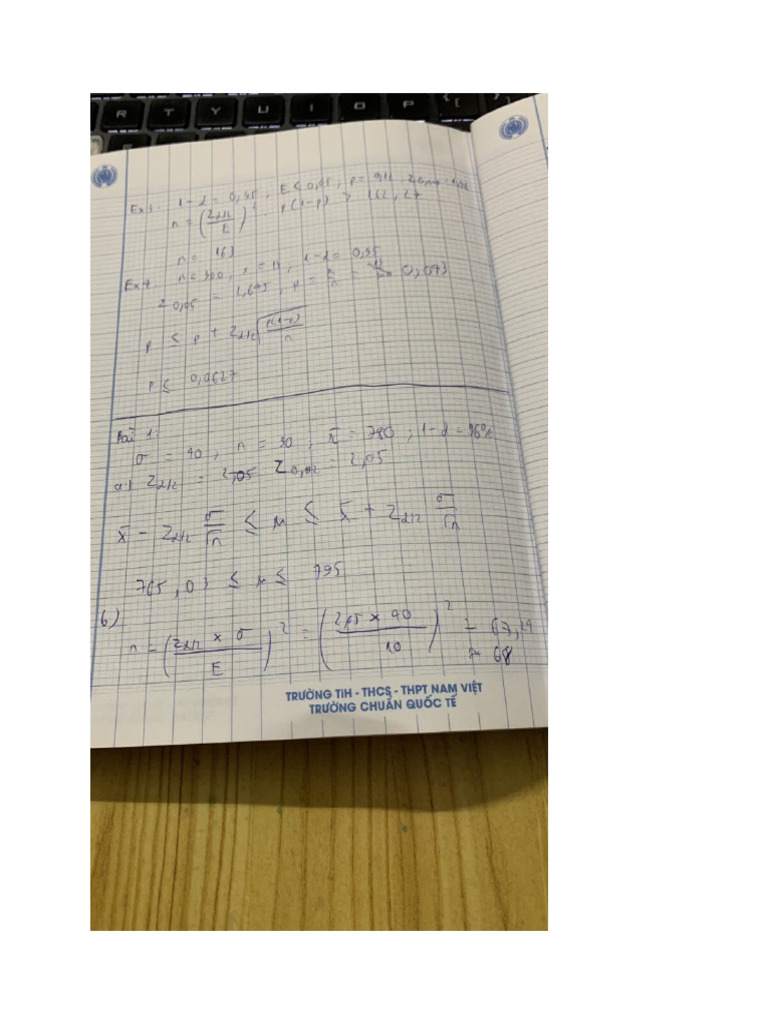 R T Y U I O P { [
Ex3. 1-α = 0,95, E ≤ 0,05, p = 0,12
n = (Zα/2 / E)² . p(1-p) > 162,27
n = 163
Ex4. n = 300, x = 13, 1-α = 0,95
Z0,05 = 1,645, p = x/n = 13/300 0,043
p ≤ p + Zα/2 √(p(1-p)/n)
p ≤ 0,0627
Bài 1:
σ = 40, n = 30, x̄ = 780, 1-α = 96%
a) Zα/2 = Z0,02 = 2,05
x̄ - Zα/2 σ/√n ≤ μ ≤ x̄ + Zα/2 σ/√n
765,03 ≤ μ ≤ 795
b)
n = (Zα/2 × σ / E)² = (2,05 × 40 / 10)² = 67,24
≈ 68
TRƯỜNG TiH - THCS - THPT NAM VIỆT
TRƯỜNG CHUẨN QUỐC TẾ